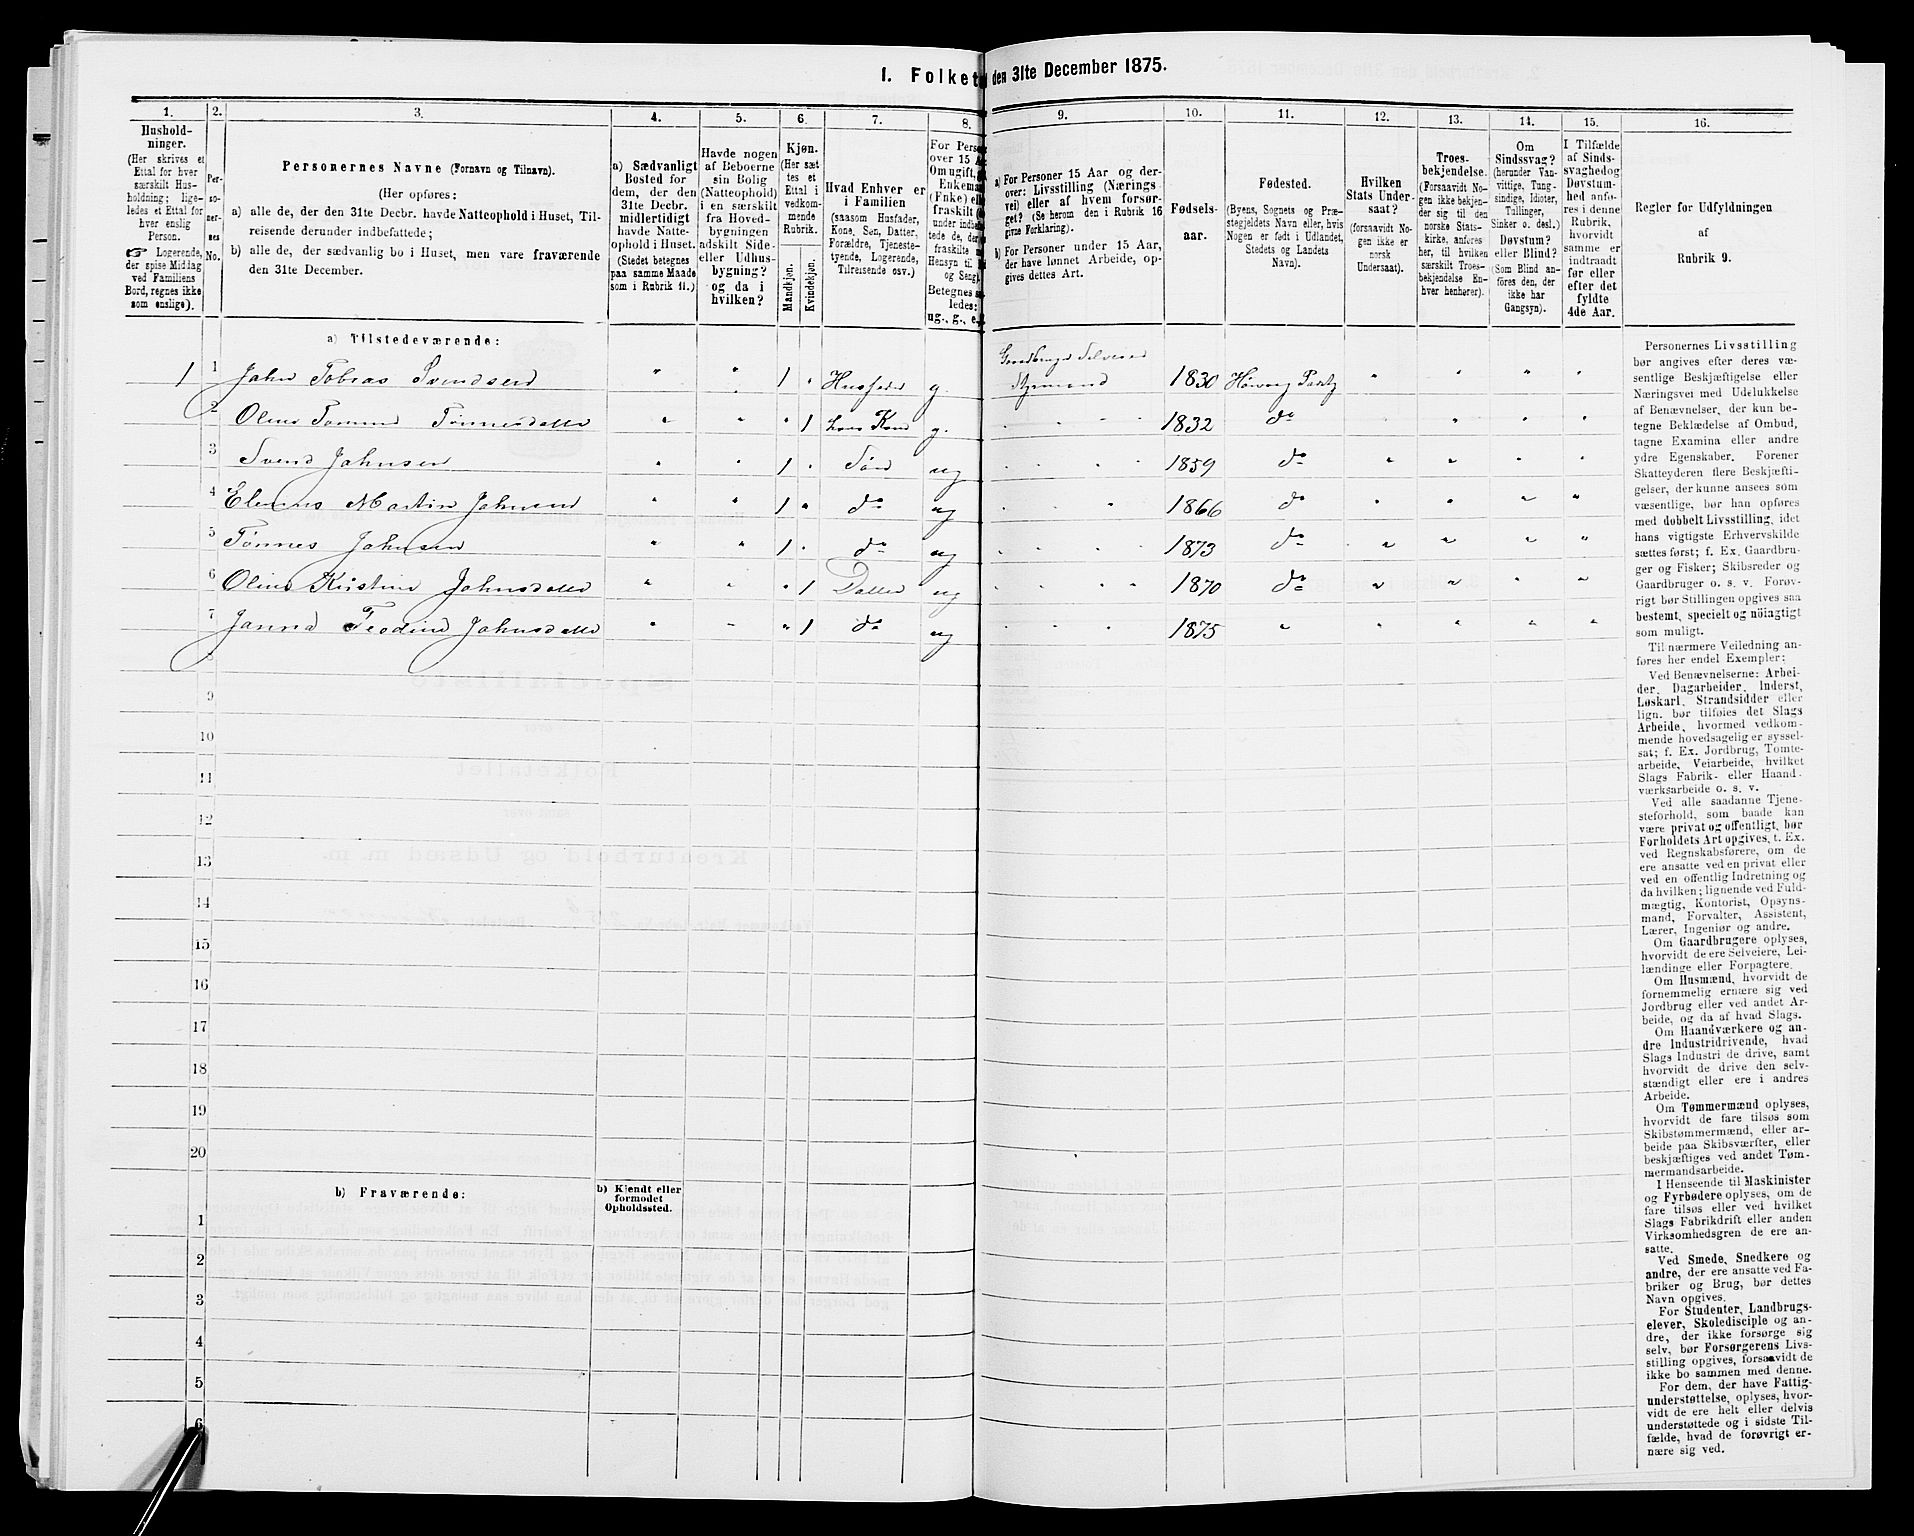 1. Folket den 31te December 1875.
1.
Hushold-
ninger.
(Her skrives et
Ettal for hver
særskilt Hus-
holdning; lige-
ledes et Ettal for
hver enslig
Person.
☞ Logerende,
der spise Midlag
ved Familiens
Bord, regnes ikke
som enslige).
2.
Per-
so-
ner-
nes
No.
3.
Personernes Navne (Fornavn og Tilnavn).
(Her opføres:
a) alle de, der den 31te Decbr. havde Natteophold i Huset, Til-
reisende derunder indbefattede;
b) alle de, der sædvanlig bo i Huset, men vare fraværende
den 31te December.
4.
a) Sædvanligt
Bosted for
dem, der den
31te Decbr.
midlertidigt
havde Natte-
ophold i Huset.
(Stedet betegnes
paa samme Maade
som i Rubrik 11.)
5.
Havde nogen
af Beboerne
sin Bolig
(Natteophold)
i en særskilt
fra Hoved-
bygningen
adskilt Side-
eller Udhus-
bygning?
og da i
hvilken?
6.
Kjøn.
(Her sæt
tes et
Ettal i
vedkom-
mende
Rubrik.
Mandkjøn.
Kvindekjøn.
7.
Hvad Enhver er
i Familien
(saasom Husfader,
Kone, Søn, Datter,
Forældre, Tjeneste-
tyende, Logerende,
Tilreisende osv.)
8.
For Perso
over 15 Aa
Om ugift,
Enkema
(Enke) el
fraskilt
under indbe
tede de, der
fraskilte
Hensyn til
og Seng)
Betegnes s
ledes:
ug., g., e.,
9.
a) For Personer 15 Aar og der-
over: Livsstilling (Nærings
vei) eller af hvem forsør-
get? (Se herom den i Rubrik 16
givne Forklaring).
b) For Personer under 15 Aar,
der have lønnet Arbeide, op-
gives dettes Art.
10.
Fødsels-
aar.
11.
Fødested.
(Byens, Sognets og Præ-
stegjeldets Navn eller, hvis
Nogen er født i Udlandet,
Stedets og Landets
Navn).
12.
Hvilken
Stats Under-
saat?
(forsaavidt No-
gen ikke er
norsk
Undersaat).
13.
Troes-
bekjendelse.
(Forsaavidt No-
gen ikke bekjen-
der sig til den
norske Stats-
kirke, anføres
her, til hvilken
særskilt Troes-
bekjendelse En-
hver henhører).
14.
Om
Sindssvag?
(herunder Van-
vittige, Tung-
sindige, Idioter,
Tullinger,
Sinker o. desl.)
Døvstum?
eller Blind?
(Som Blind an-
føres den, der
ikke har
Gangsyn).
15.
I Tilfælde
af Sinds-
svaghedog
Døvstum-
hed anfø-
res i denne
Rubrik,
hvorvidt
samme er
indtraadt
før eller
efter det
fyldte
4de Aar.
16.
Regler for Udfyldningen
af
Rubrik 9.
a) Tilstedeværende:
1 1 John Tobias Svendsen " " 1 " Husfader g. Gaardbruger Selveier Styrmand 1830 Høivaag Prstgj " " " "
2 Oline Tønnesdatter " " " 1 hans Kone g. " " " 1832 do " " " "
3 Svend Johnsen " " 1 " Søn ug " " " 1859 do " " " "
4 Martin Johnsen " " 1 " do ug " " " 1866 do " " " "
5 Tønnes Johnsen " " 1 " do ug " " " 1873 do " " " "
6 Oline Kirstine Johnsdatter " " " 1 Datter ug " " " 1870 do " " " "
7 Janna Teodine Johnsdatter " " " 1 do ug " " " 1875 " " " " "
8
9
10
11
12
13
14
15
16
17
18
19
20
b) Fraværende:
b) Kjendt eller
formodet
Opholdssted.
1
2
3
4
5
6
Personernes Livsstilling
bør angives efter deres væ-
sentlige Beskjæftigelse eller
Næringsvei med Udelukkelse
af Benævnelser, der kun be-
tegne Beklædelse af Ombud,
tagne Examina eller andre
ydre Egenskaber. Forener
Skatteyderen flere Beskjæfti-
gelser, der kunne ansees som
væsentlige, bør han opføres
med dobbelt Livsstilling, idet
hans vigtigste Erhvervskilde
sættes først; f. Ex. Gaardbru-
ger og Fisker; Skibsreder og
Gaardbruger o. s. v. Forøv-
rigt bør Stillingen opgives saa
bestemt, specielt og nöiagtigt
som muligt.
Til nærmere Veiledning an-
føres her endel Exempler:
Ved Benævnelserne: Arbei-
der, Dagarbeider, Inderst,
Løskarl, Strandsidder eller
lign. bør tilføies det Slags
Arbeide, hvormed vedkom-
mende hovedsagelig er syssel-
sat; f. Ex. Jordbrug, Tomte-
arbeide, Veiarbeide, hvilket
Slags Fabrik- eller Haand-
værksarbeide o. s. v.
Ved alle saadanne Tjene-
steforhold, som baade kan
være privat og offentligt, bør
Forholdets Art opgives, t. Ex.
ved Regnskabsførere, om de
ere ansatte ved en privat eller
ved en offentlig Indretning og
da hvilken; lignende ved Fuld-
mægtig, Kontorist, Opsyns-
mand, Forvalter, Assistent,
Lærer, Ingeniør og andre.
Om Gaardbrugere oplyses,
hvorvidt de ere Selveiere, Lei-
lændinge eller Forpagtere.
Om Husmænd, hvorvidt de
fornemmelig ernære sig ved
Jordbrug eller ved andet Ar-
beide, og da af hvad Slags.
Om Haandværkere og an-
dre Industridrivende, hvad
Slags Industri de drive, samt
hvorvidt de drive den selv-
stændigt eller ere i andres
Arbeide.
Om Tømmermænd oplyses,
hvorvidt de fare tilsøs som
Skibstømmermænd, eller ar-
beide paa Skibsværfter, eller
beskjæftiges ved andet Tøm-
mermandsarbeide.
I Henseende til Maskinister
og Fyrbødere oplyses, om de
fare tilsøs eller ved hvilket
Slags Fabrikdrift eller anden
Virksomhedsgren de ere an-
satte.
Ved Smede, Snedkere og
andre, der ere ansatte ved Fa-
briker og Brug, bør dettes
Navn opgives.
For Studenter, Landbrugs-
elever, Skoledisciple og an-
dre, der ikke forsørge sig
selv, bør Forsørgerens Livs-
stilling opgives, forsaavidt de
ikke bo sammen med denne.
For dem, der have Fattig-
understøttelse, oplyses, hvor-
vidt de ere helt eller delvis
understøttede og i sidste Til-
fælde, hvad de forøvrigt er-
nære sig ved.